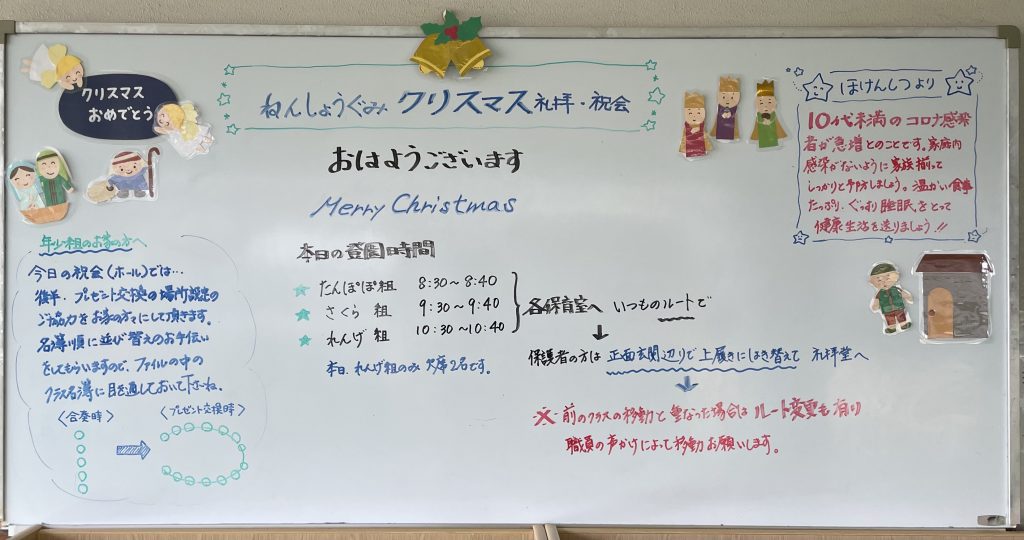 クリスマス
おめでとう
ねんしょうぐみ クリスマス礼拝・祝会
おはようございます
Merry Christmas
本日の登園時間
たんぽぽ組 8:30～8:40
さくら 組 9:30～9:40
れんげ 組 10:30～10:40
本日、れんげ組のみ欠席2名です。
各保育室へ いつものルートで
↓
保護者の方は 正面玄関辺りで上履きにはき替えて 礼拝堂へ
↓
※前のクラスの移動と重なった場合は ルート変更も有り
職員の声かけによって移動お願いします。
ほけんしつより
10代未満のコロナ感染
者が急増とのことです。家庭内
感染がないように家族揃って
しっかりと予防しましょう。温かい食事
たっぷり、ぐっすり睡眠をとって
健康生活を送りましょう!!
年少組のお家の方へ
今日の祝会(ホール)では…
後半・プレゼント交換の場所設定の
ご協力をお家の方々にして頂きます。
名簿順に並び替えのお手伝い
をしてもらいますので、ファイルの中の
クラス名簿に目を通しておいて下さいね。
〈合奏時〉
〈プレゼント交換時〉